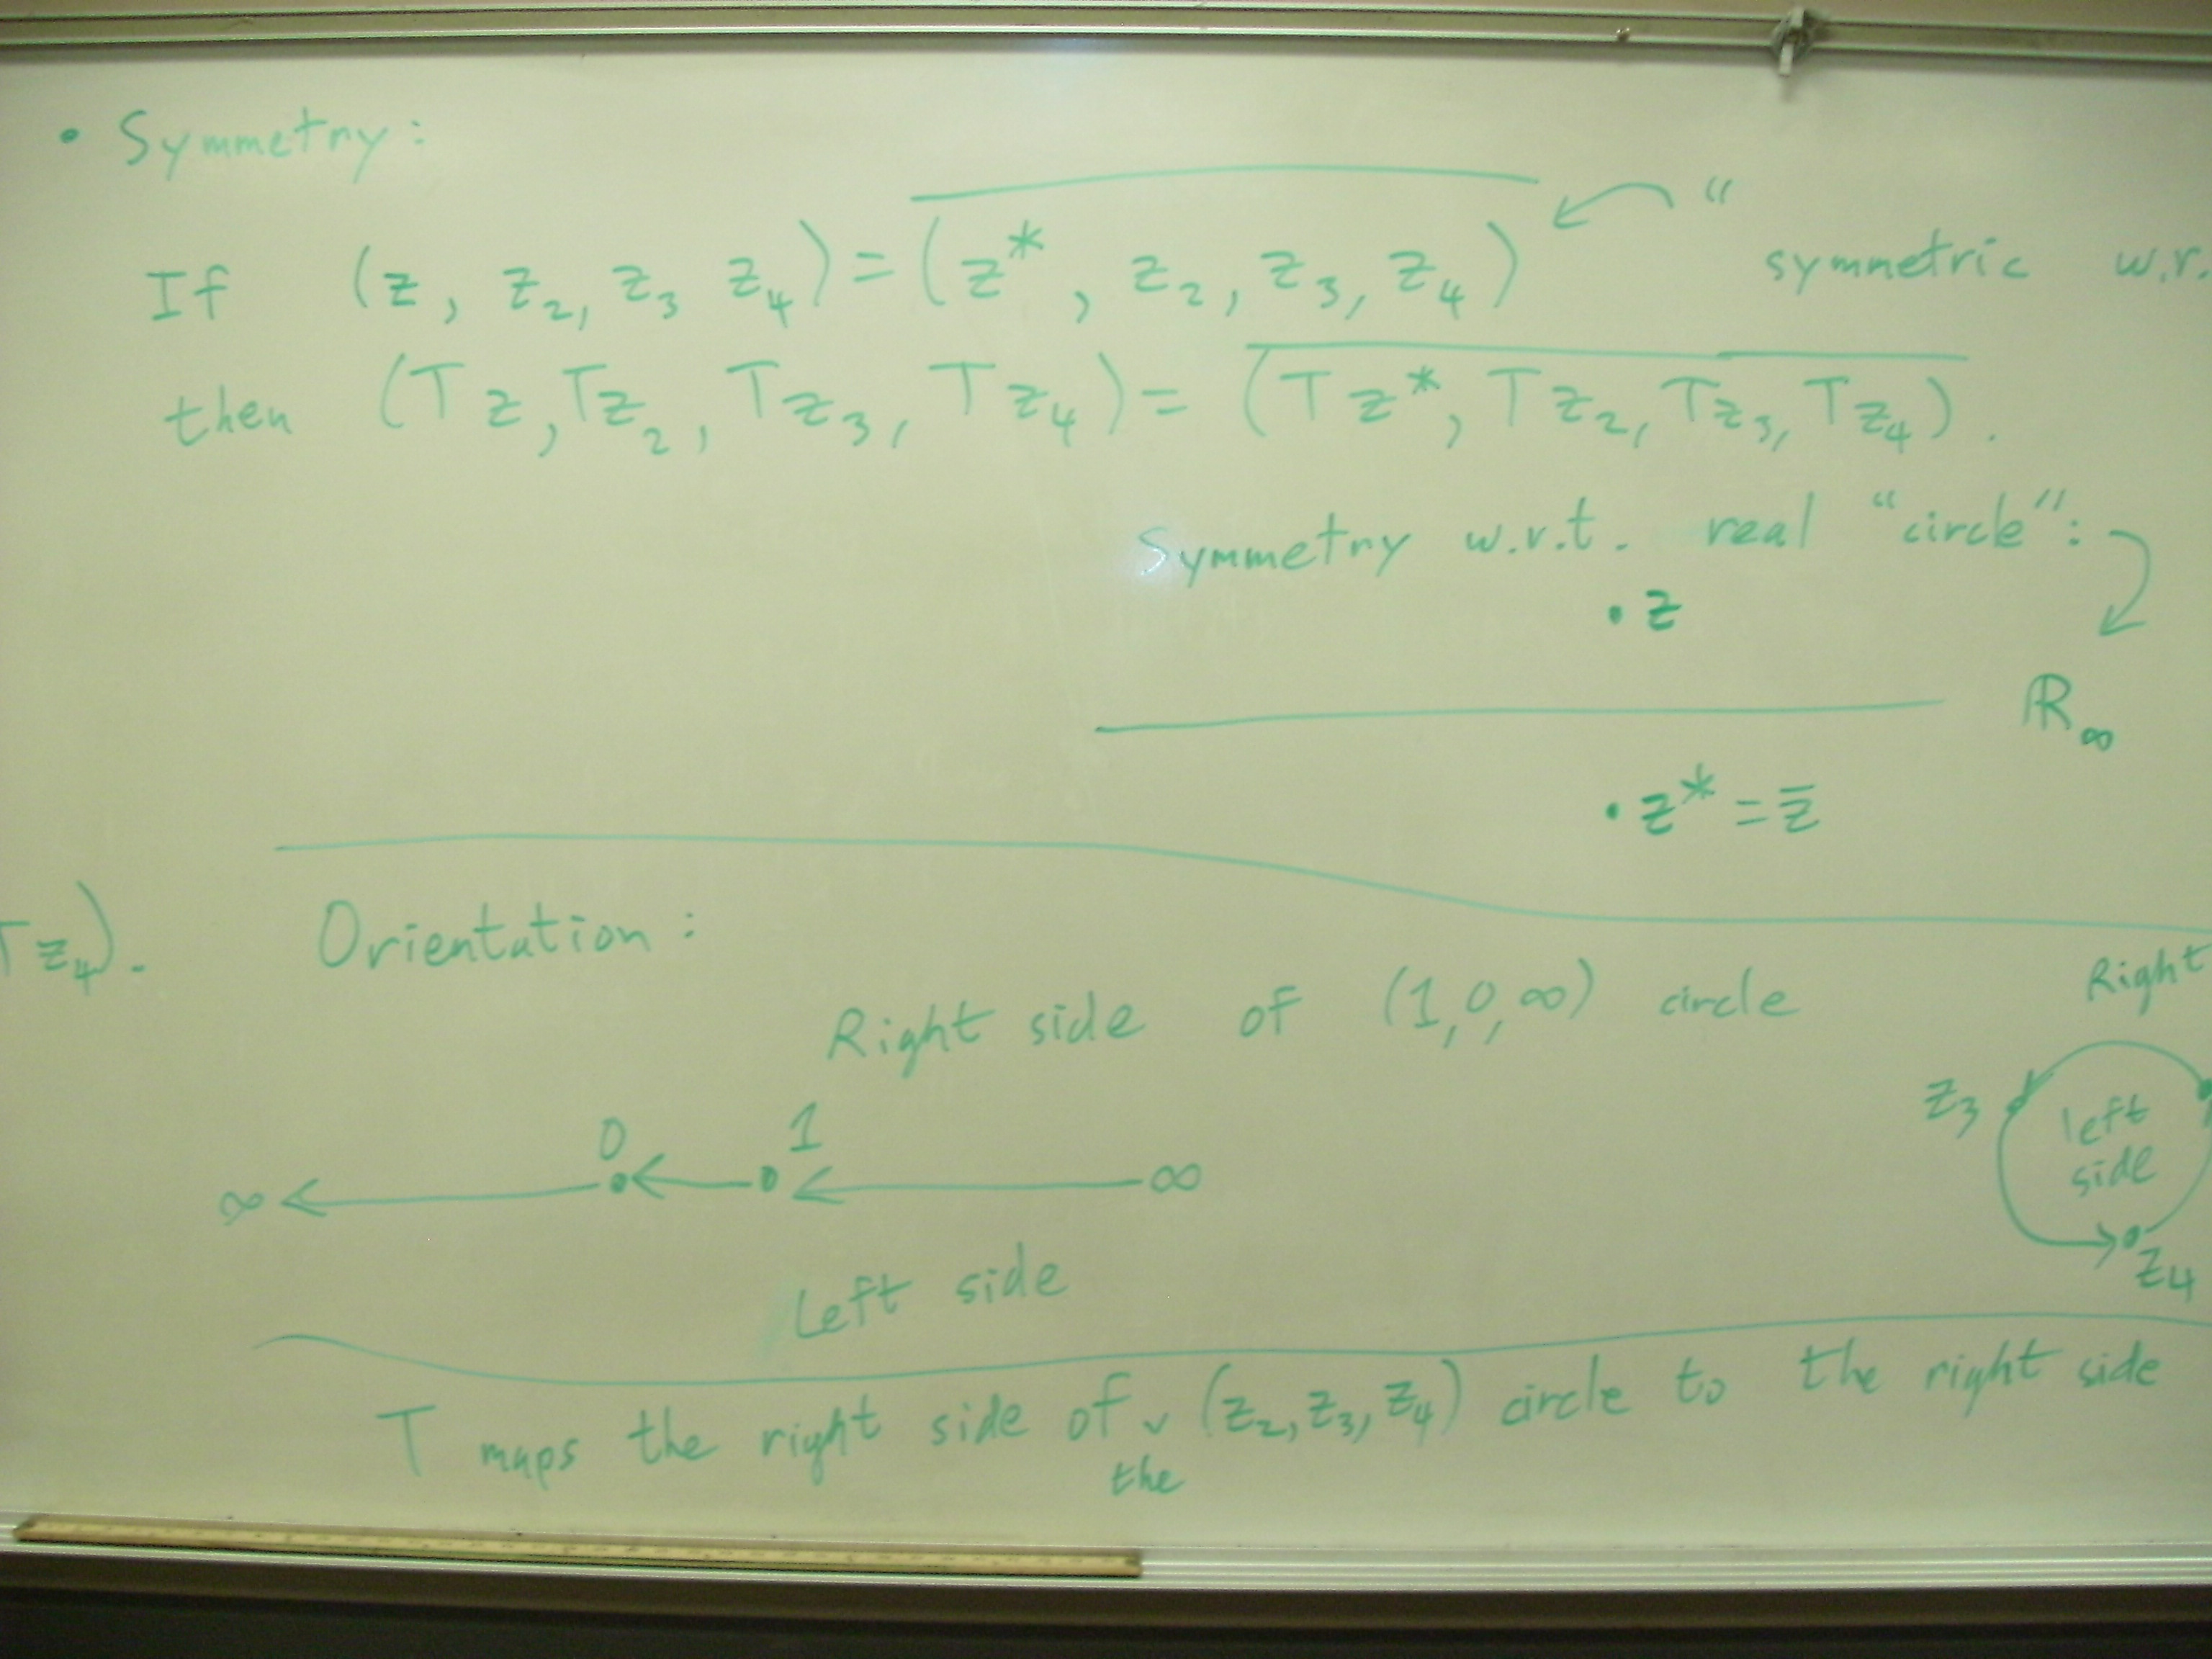 • Symmetry:
If (z, z₂, z₃ z₄) = \overline{(z*, z₂, z₃, z₄)} ↙ " symmetric w.r.
then (Tz, Tz₂, Tz₃, Tz₄) = \overline{(Tz*, Tz₂, Tz₃, Tz₄)}.
Symmetry w.r.t. real "circle":
• z
ℝ∞
• z* = z̄
Tz₄).
Orientation:
Right
Right side of (1, 0, ∞) circle
z₃
left
side
0 1
∞ ← • ← • ← ∞
z₄
Left side
T maps the right side of ∨ (z₂, z₃, z₄) circle to the right side
the